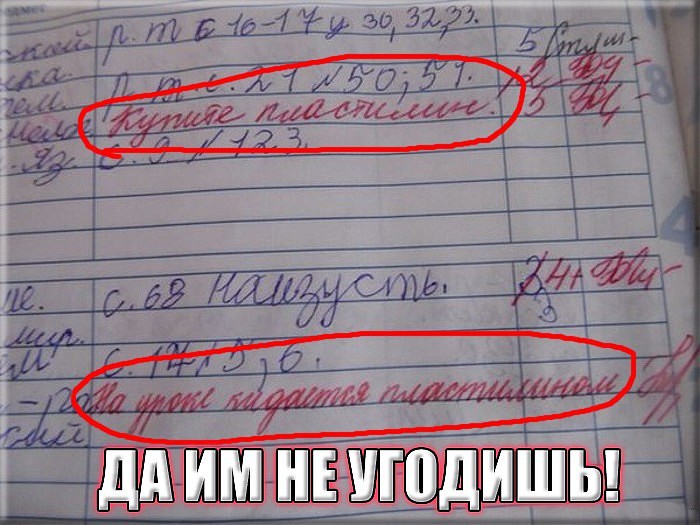 р. т с 16-17 у 30, 32, 33.
5
ка.
р. т. с. 21 № 50; 51.
Купите пластилин.
5
Яз. с. 9 № 123.
8
4
с. 68 наизусть.
4+
мир.
с. 17 № 5, 6.
На уроке кидается пластилином
ДА ИМ НЕ УГОДИШЬ!